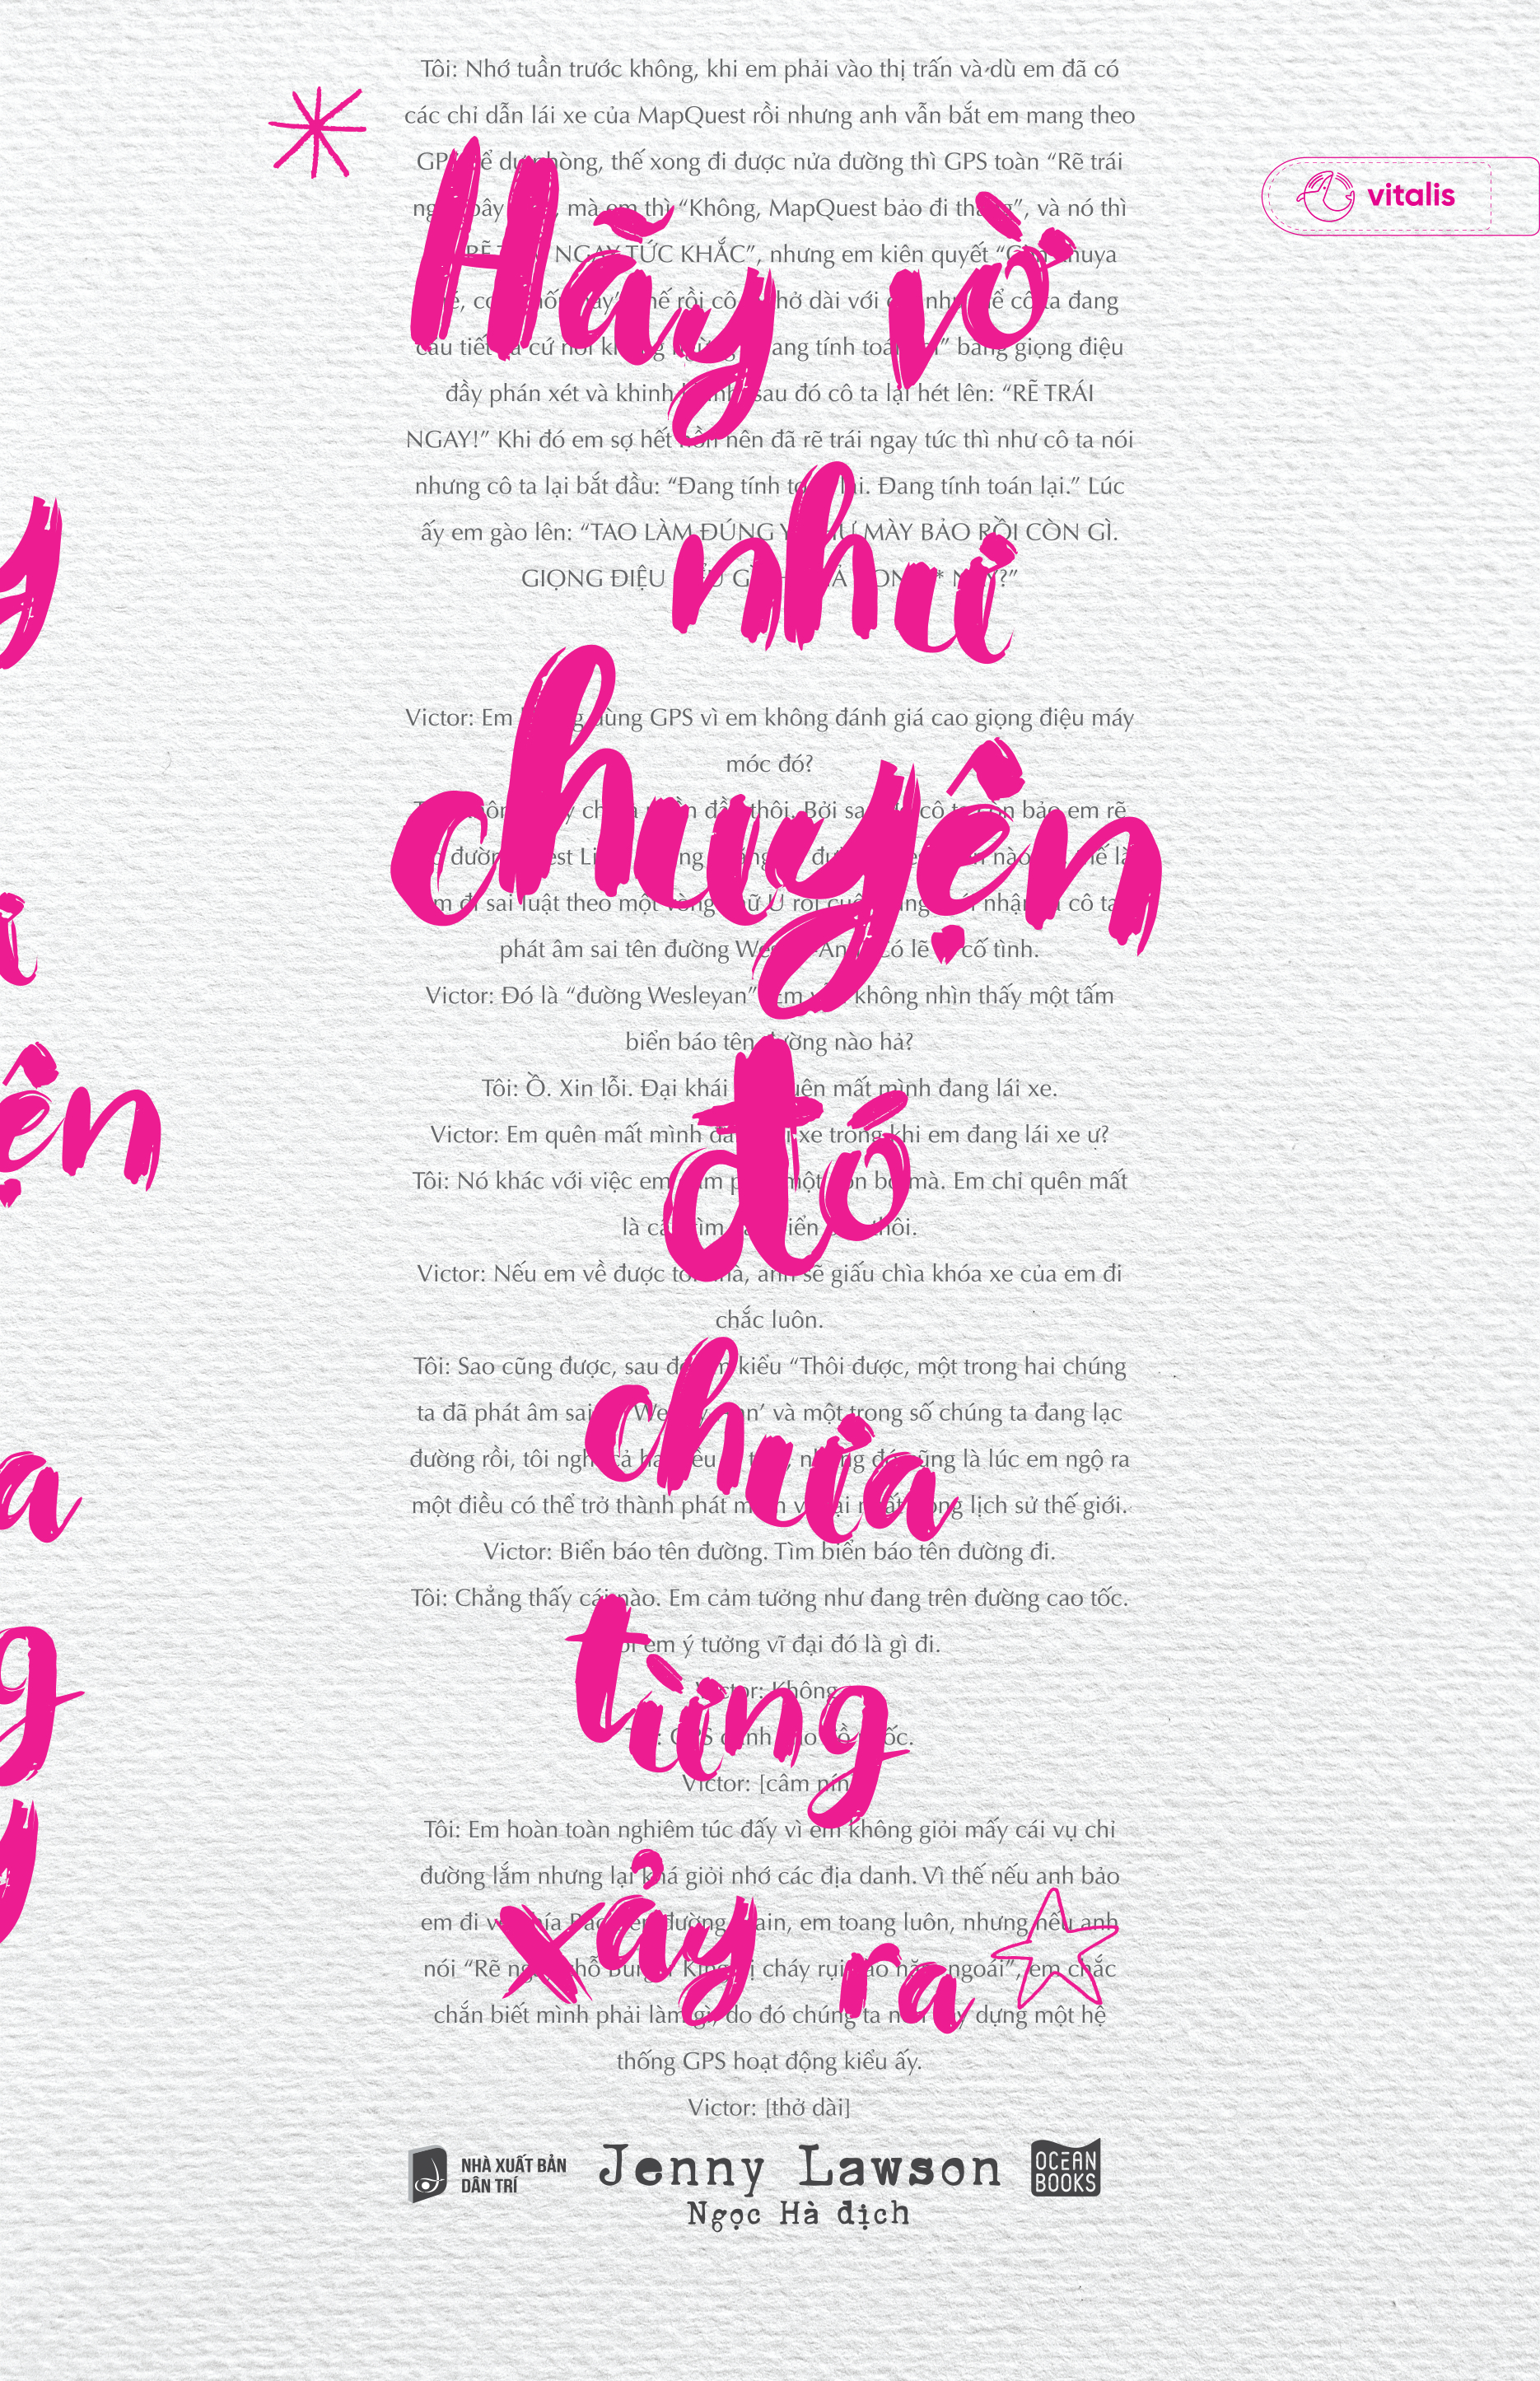 Tôi: Nhớ tuần trước không, khi em phải vào thị trấn và dù em đã có
các chỉ dẫn lái xe của MapQuest rồi nhưng anh vẫn bắt em mang theo
phòng, thế xong đi được nửa đường thì GPS toàn “Rẽ trái
mà em thì “Không, MapQuest bảo đi thẳng”, và nó thì
NGAY TỨC KHẮC”, nhưng em kiên quyết
vitalis
Hãy vờ
rồi cô thở dài với đang
cứ nói tính toán bằng giọng điệu
đầy phán xét và khinh sau đó cô ta lại hét lên: “RẼ TRÁI
NGAY!” Khi đó em sợ hết hồn nên đã rẽ trái ngay tức thì như cô ta nói
nhưng cô ta lại bắt đầu: “Đang tính toán lại. Đang tính toán lại.” Lúc
như
ấy em gào lên: “TAO LÀM ĐÚNG Y NHƯ MÀY BẢO RỒI CÒN GÌ.
GIỌNG ĐIỆU
Victor: Em không dùng GPS vì em không đánh giá cao giọng điệu máy
móc đó?
chuyện
thôi. Bởi cô ta còn bảo em rẽ
sai luật theo một vòng chữ U rồi nhận cô ta
phát âm sai tên đường Có lẽ cố tình.
Victor: Đó là “đường Wesleyan”. Em vẫn không nhìn thấy một tấm
biển báo tên đường nào hả?
đó
Tôi: Ồ. Xin lỗi. Đại khái quên mất mình đang lái xe.
Victor: Em quên mất mình đang lái xe trong khi em đang lái xe ư?
Tôi: Nó khác với việc em một con bò mà. Em chỉ quên mất
là tìm biển thôi.
Victor: Nếu em về được tới nhà, anh sẽ giấu chìa khóa xe của em đi
chắc luôn.
chưa
Tôi: Sao cũng được, sau đó em kiểu “Thôi được, một trong hai chúng
ta đã phát âm sai và một trong số chúng ta đang lạc
đường rồi, tôi nghĩ cả hai đều nhưng đó cũng là lúc em ngộ ra
một điều có thể trở thành phát minh vĩ đại nhất trong lịch sử thế giới.
Victor: Biển báo tên đường. Tìm biển báo tên đường đi.
Tôi: Chẳng thấy cái nào. Em cảm tưởng như đang trên đường cao tốc.
em ý tưởng vĩ đại đó là gì đi.
từng
Victor: Không.
GPS dành cho
Victor: [câm nín]
Tôi: Em hoàn toàn nghiêm túc đấy vì em không giỏi mấy cái vụ chỉ
đường lắm nhưng lại khá giỏi nhớ các địa danh. Vì thế nếu anh bảo
xảy ra
em đi về phía Bắc trên đường Main, em toang luôn, nhưng nếu anh
nói “Rẽ ngay chỗ Burger King bị cháy rụi vào năm ngoái”, em chắc
chắn biết mình phải làm gì, do đó chúng ta nên xây dựng một hệ
thống GPS hoạt động kiểu ấy.
Victor: [thở dài]
NHÀ XUẤT BẢN
DÂN TRÍ
Jenny Lawson
Ngọc Hà dịch
OCEAN
BOOKS